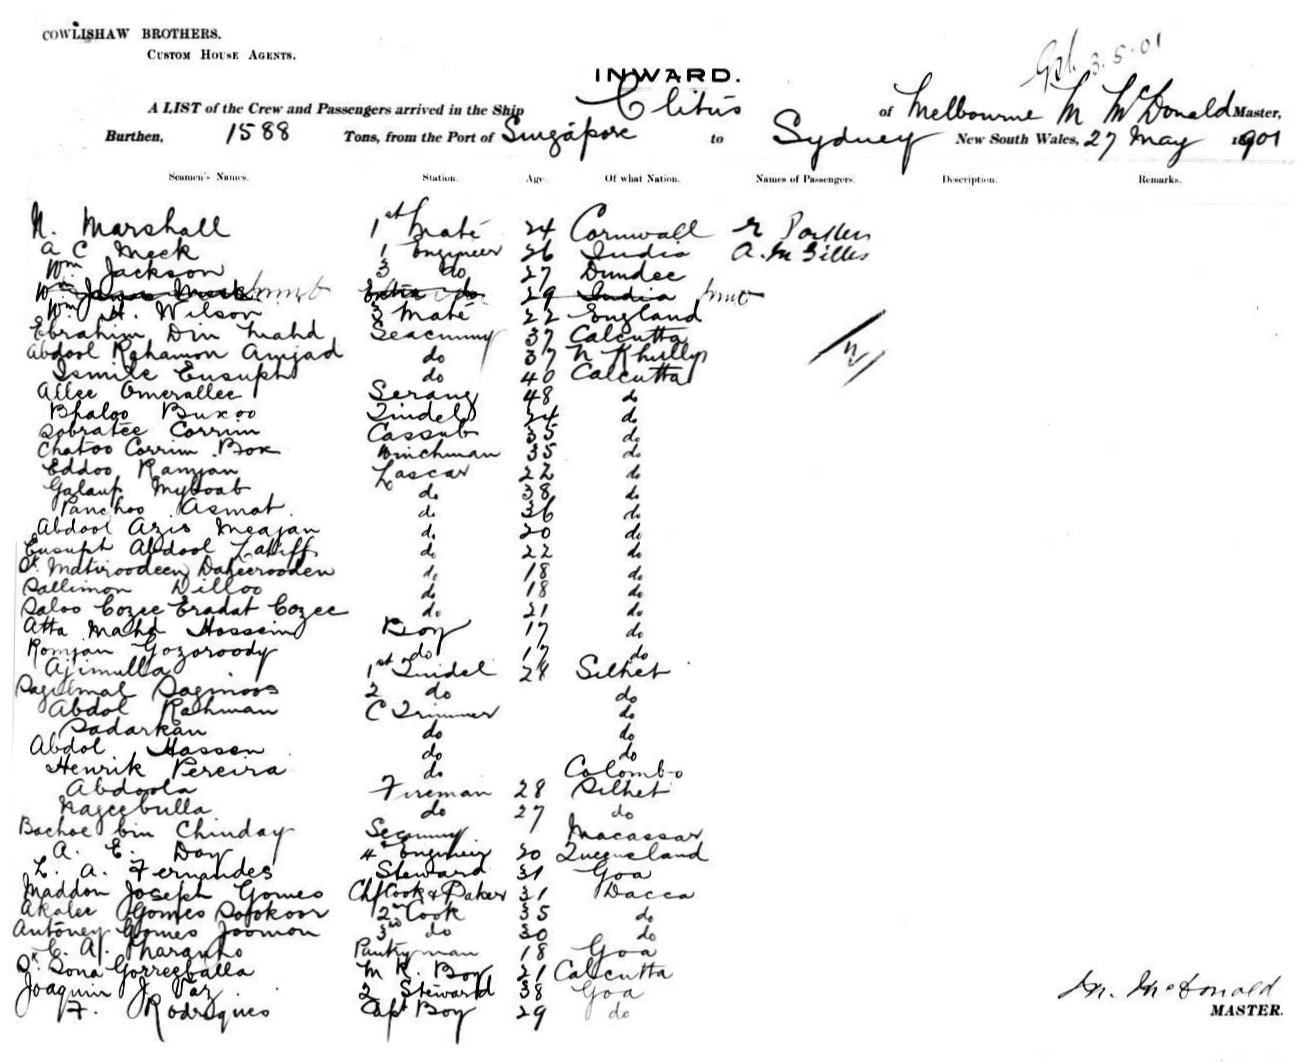 COWLISHAW BROTHERS.
CUSTOM HOUSE AGENTS.
3.5.01
INWARD.
A LIST of the Crew and Passengers arrived in the Ship Clitus of Melbourne M McDonald Master,
Burthen, 1588 Tons, from the Port of Singapore to Sydney New South Wales, 27 May 1901
Seamen's Names. Station. Age. Of what Nation. Names of Passengers. Description. Remarks.
N. Marshall 1st Mate 24 Cornwall
A C Meek 1 Engineer 26 India A. M Gilles
Wm Jackson 3 do 27 Dundee
Wm 29 India
Wm H. Wilson 3 Mate 22 England
Ebrahim Din Mahd Seacunny 37 Calcutta
Abdool Rahamon Amjad do 37 N Khully
Ismile Eusuph do 40 Calcutta
Allee Omerallee Serang 48 do
Bhaloo Buxoo Tindel 24 do
Sobratee Corrim Cassub 35 do
Chatoo Corrim Box Winchman 35 do
Eddoo Ramjan Lascar 22 do
Galauf Myboab do 38 do
Panchoo Asmat do 36 do
Abdool Azis Meajan do 20 do
Eusuph Abdool Latiff do 22 do
Daheerooden do 18 do
Sallimon Dilloo do 18 do
Saloo Cozee Eradat Cozee do 21 do
Atta Mahd Hossein Boy 17 do
Romjan Gozoroody do 17 do
Ajimulla 1st Tindel 28 Silhet
2 do do
Abdol Rahman C Trimmer do
Sadarkan do do
Abdol Hassen do do
Henrik Pereira do Colombo
Abdoola Fireman 28 Silhet
Nageebulla do 27 do
Bachoe bin Chinday Secunny Macassar
A. E. Day 4th Engineer 20 Queensland
L. A. Fernandes Steward 31 Goa
Maddon Joseph Gomes Chf Cook & Baker 31 Dacca
Akalee Gomes Sofokoor 2nd Cook 35 do
Antoney Gomes Joomon 3rd do 30 do
C. A. Pharanho Pantryman 18 Goa
Sk. Sona Gorreeballa M R. Boy 21 Calcutta
Joaquin J. Vaz 2 Steward 38 Goa
F. Rodrigues Capt Boy 29 do
M. McDonald
MASTER.